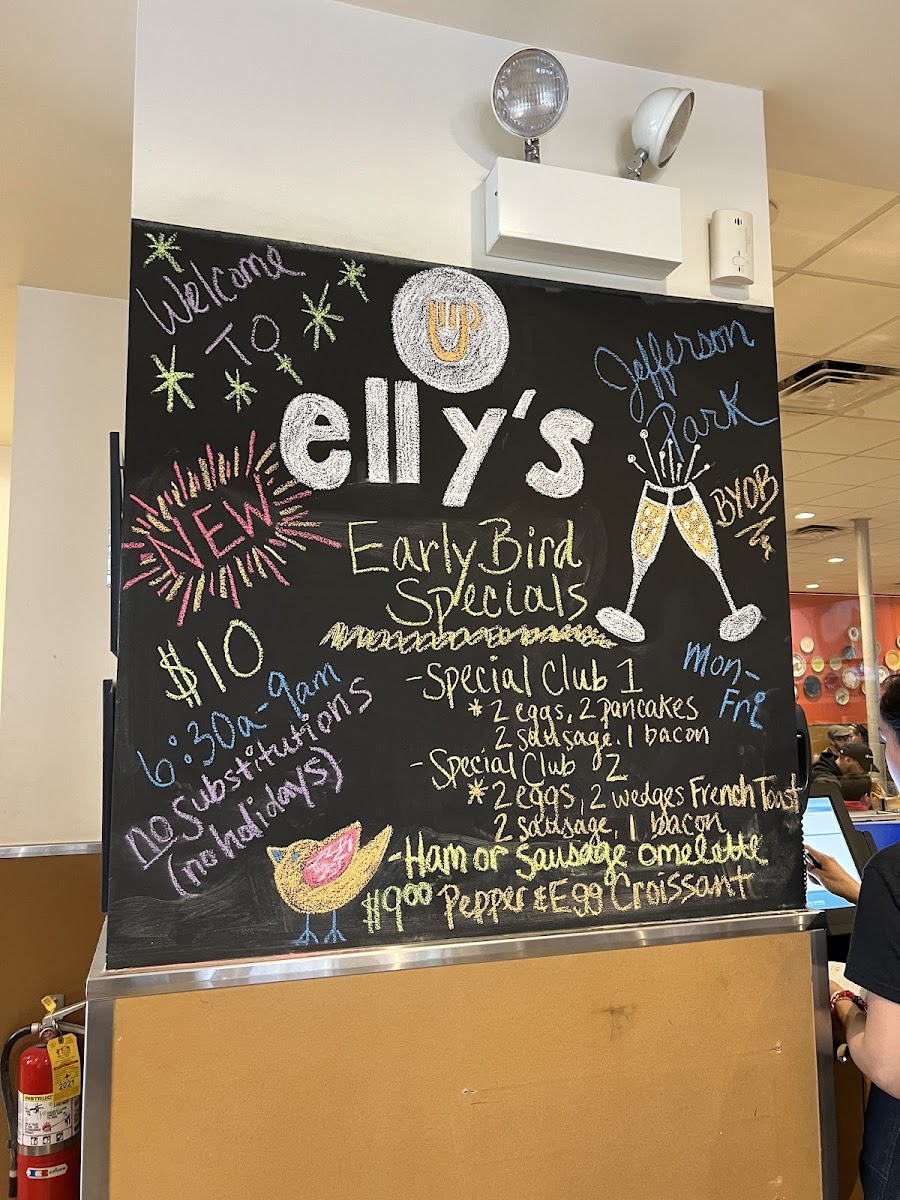 Welcome
TO
UP
elly's
Jefferson
Park
NEW
BYOB
Early Bird
Specials
$10
6:30a-9am
no substitutions
(no holidays)
Mon-
Fri
-Special Club 1
*2 eggs, 2 pancakes
2 sausage, 1 bacon
-Special Club 2
*2 eggs, 2 wedges French Toast
2 sausage, 1 bacon
-Ham or Sausage omelette
$9.00 Pepper & Egg Croissant
2021
INSTRUC